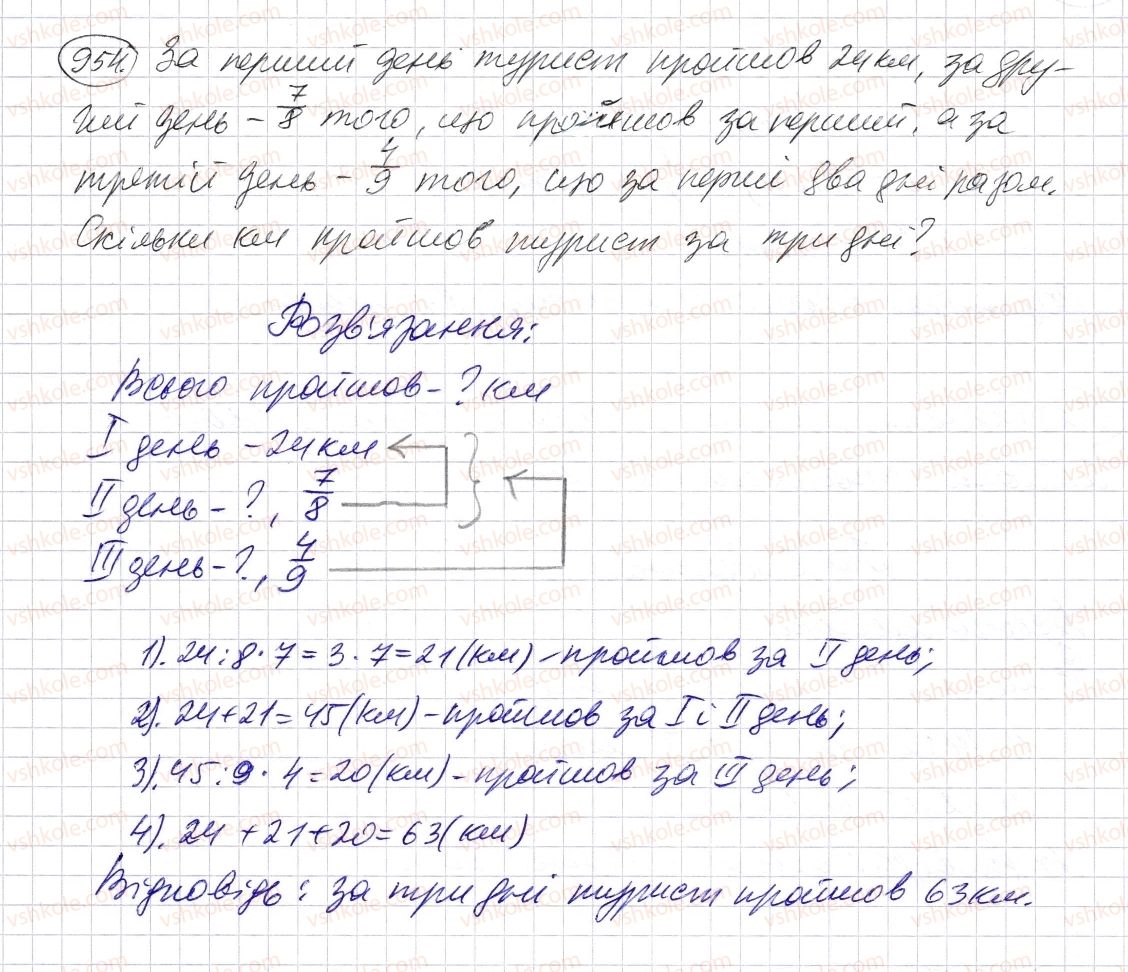 954. За перший день турист пройшов 24 км, за дру-
гий день - 7/8 того, що пройшов за перший, а за
третій день - 4/9 того, що за перші два дні разом.
Скільки км пройшов турист за три дні?
Розв'язання:
Всього пройшов - ? км
I день - 24 км
II день - ?, 7/8
III день - ?, 4/9
1). 24 : 8 · 7 = 3 · 7 = 21 (км) - пройшов за II день;
2). 24 + 21 = 45 (км) - пройшов за I і II день;
3). 45 : 9 · 4 = 20 (км) - пройшов за III день;
4). 24 + 21 + 20 = 63 (км)
Відповідь: за три дні турист пройшов 63 км.